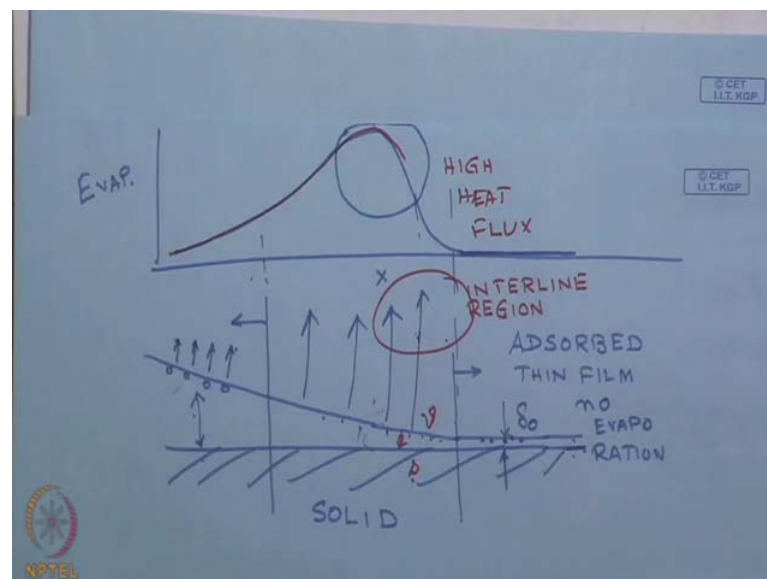 © CET
I.I.T. KGP
© CET
I.I.T. KGP
EVAP.
HIGH
HEAT
FLUX
x
INTERLINE
REGION
ADSORBED
THIN FILM
δ₀
no
EVAPO
RATION
v
l
s
SOLID
NPTEL